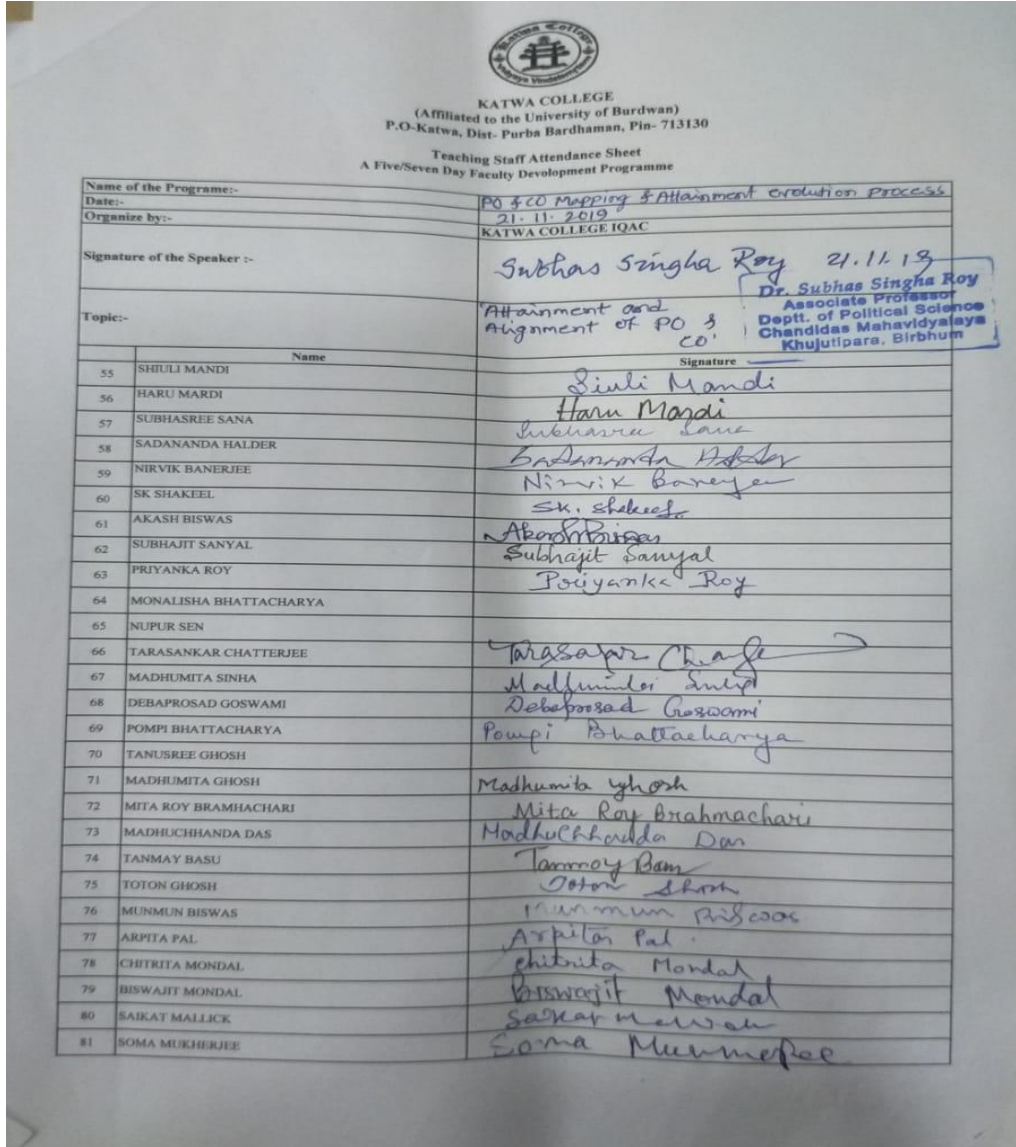 Katwa College
Vidyaya Vindateamritam
KATWA COLLEGE
(Affiliated to the University of Burdwan)
P.O-Katwa, Dist- Purba Bardhaman, Pin- 713130
Teaching Staff Attendance Sheet
A Five/Seven Day Faculty Devolopment Programme
Name of the Programe:- PO & CO Mapping & Attainment evolution process
Date:- 21.11.2019
Organize by:- KATWA COLLEGE IQAC
Signature of the Speaker :- Subhas Singha Roy 21.11.19
Dr. Subhas Singha Roy
Associate Professor
Deptt. of Political Science
Chandidas Mahavidyalaya
Khujutipara, Birbhum
Topic:- 'Attainment and
Alignment of PO &
CO'
Name Signature
55 SHIULI MANDI Siuli Mandi
56 HARU MARDI Haru Mardi
57 SUBHASREE SANA Subhasree Sana
58 SADANANDA HALDER Sadananda Halder
59 NIRVIK BANERJEE Nirvik Banerjee
60 SK SHAKEEL SK. Shakeel
61 AKASH BISWAS Akash Biswas
62 SUBHAJIT SANYAL Subhajit Sanyal
63 PRIYANKA ROY Priyanka Roy
64 MONALISHA BHATTACHARYA
65 NUPUR SEN
66 TARASANKAR CHATTERJEE
67 MADHUMITA SINHA Madhumita Sinha
68 DEBAPROSAD GOSWAMI Debaprosad Goswami
69 POMPI BHATTACHARYA Pompi Bhattacharya
70 TANUSREE GHOSH
71 MADHUMITA GHOSH Madhumita Ghosh
72 MITA ROY BRAMHACHARI Mita Roy Brahmachari
73 MADHUCHHANDA DAS Madhuchhanda Das
74 TANMAY BASU Tanmoy Basu
75 TOTON GHOSH Toton Ghosh
76 MUNMUN BISWAS Munmun Biswas
77 ARPITA PAL Arpita Pal.
78 CHITRITA MONDAL Chitrita Mondal
79 BISWAJIT MONDAL Biswajit Mondal
80 SAIKAT MALLICK
81 SOMA MUKHERJEE Soma Mukherjee